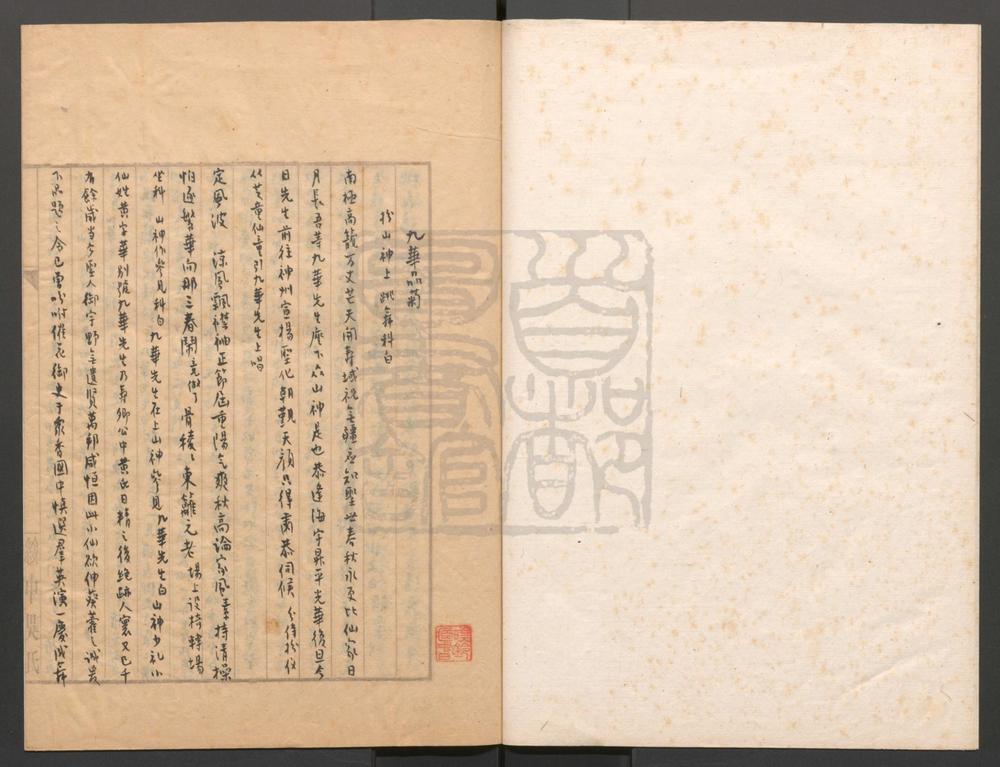 九華品菊
扮山神上跳舞科白
南極高籠万丈芒天開壽域祝無疆應知聖世春秋永更比仙家日
月長吾等九華先生座下众山神是也恭逢海宇昇平光華復旦今
日先生前往神州宣揚聖化朝覲天顏只得肅恭伺候 介侍扮仪
从芝童仙童引九華先生上唱
定風波 涼風飄襟袖正節屆重陽气爽秋高論家風素持清操
怕逐繁華向那三春鬧竞做了骨稜〻東籬元老 場上设椅轉場
坐科 山神作參見科白九華先生在上山神參見九華先生白山神少礼小
仙姓黄字華别號九華先生乃壽卿公中黄氏日精之後絶跡人寰又已千
有餘歲当今聖人御宇野無遺賢萬邦咸恒因此小仙欲伸葵藿之诚畏
下品題之令已曾吩咐催花御史于众香國中慎選羣英演一慶成舞